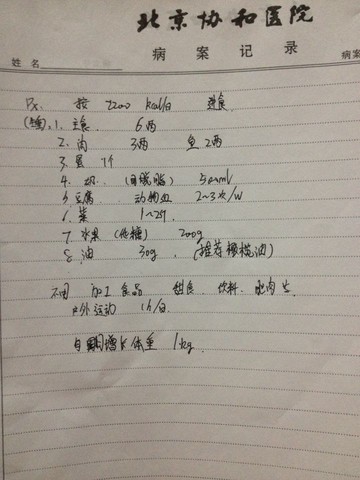 北京协和医院
病案记录
姓名 病案
Rx. 按 2200 kcal/日 进食
1. 主食 6两
2. 肉 3两 鱼 2两
3. 蛋 1个
4. 奶 (低脂) 500ml
5. 豆腐 动物血 2~3次/W
6. 菜 1~2斤
7. 水果 (低糖) 200g
8. 油 30g (推荐橄榄油)
不用 加工食品 甜食 饮料 肥肉
户外运动 1h/日
增长体重 1kg